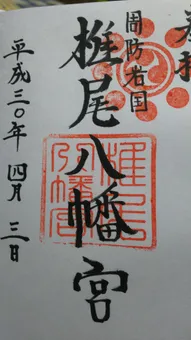 奉拝
周防岩国
椎尾八幡宮
椎尾
八幡宮
平成三〇年 四月 三日